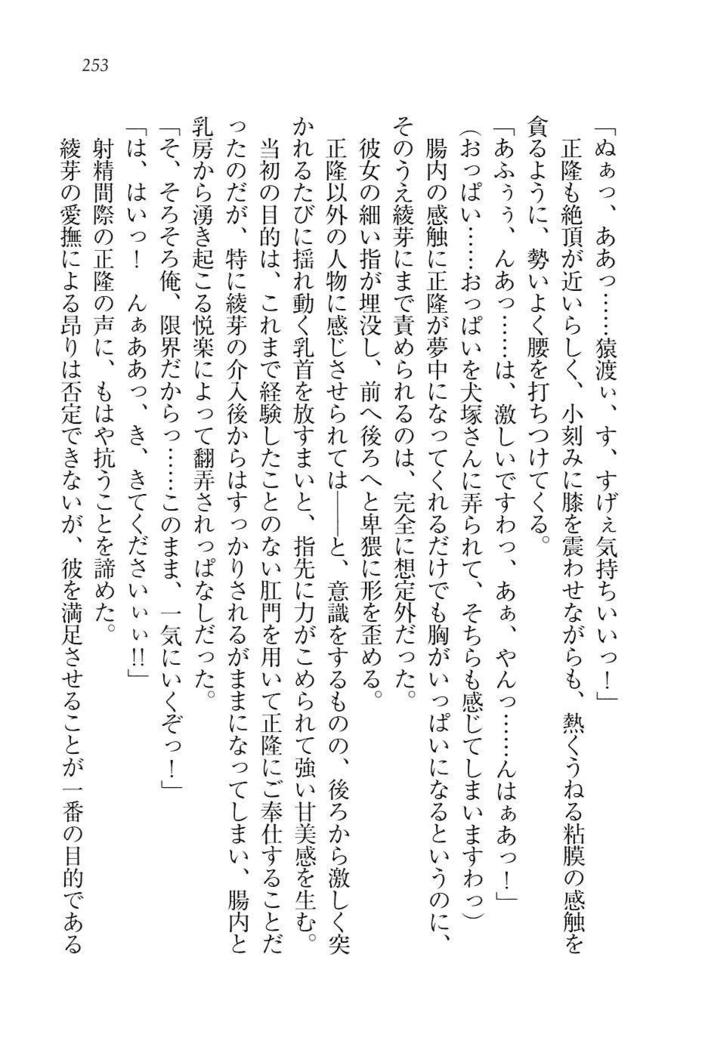 253
「ぬぁっ、ああっ……猿渡ぃ、す、すげぇ気持ちいいっ！」
正隆も絶頂が近いらしく、小刻みに膝を震わせながらも、熱くうねる粘膜の感触を
貪るように、勢いよく腰を打ちつけてくる。
「あふぅぅ、んあっ……は、激しいですわっ、あぁ、やんっ……んはぁあっ！」
（おっぱい……おっぱいを犬塚さんに弄られて、そちらも感じてしまいますわっ）
腸内の感触に正隆が夢中になってくれるだけでも胸がいっぱいになるというのに、
そのうえ綾芽にまで責められるのは、完全に想定外だった。
彼女の細い指が埋没し、前へ後ろへと卑猥に形を歪める。
正隆以外の人物に感じさせられては――と、意識をするものの、後ろから激しく突
かれるたびに揺れ動く乳首を放すまいと、指先に力がこめられて強い甘美感を生む。
当初の目的は、これまで経験したことのない肛門を用いて正隆にご奉仕することだ
ったのだが、特に綾芽の介入後からはすっかりされるがままになってしまい、腸内と
乳房から湧き起こる悦楽によって翻弄されっぱなしだった。
「そ、そろそろ俺、限界だからっ……このまま、一気にいくぞっ！」
「は、はいっ！　んぁああっ、き、きてくださいぃぃ!!」
射精間際の正隆の声に、もはや抗うことを諦めた。
綾芽の愛撫による昂りは否定できないが、彼を満足させることが一番の目的である